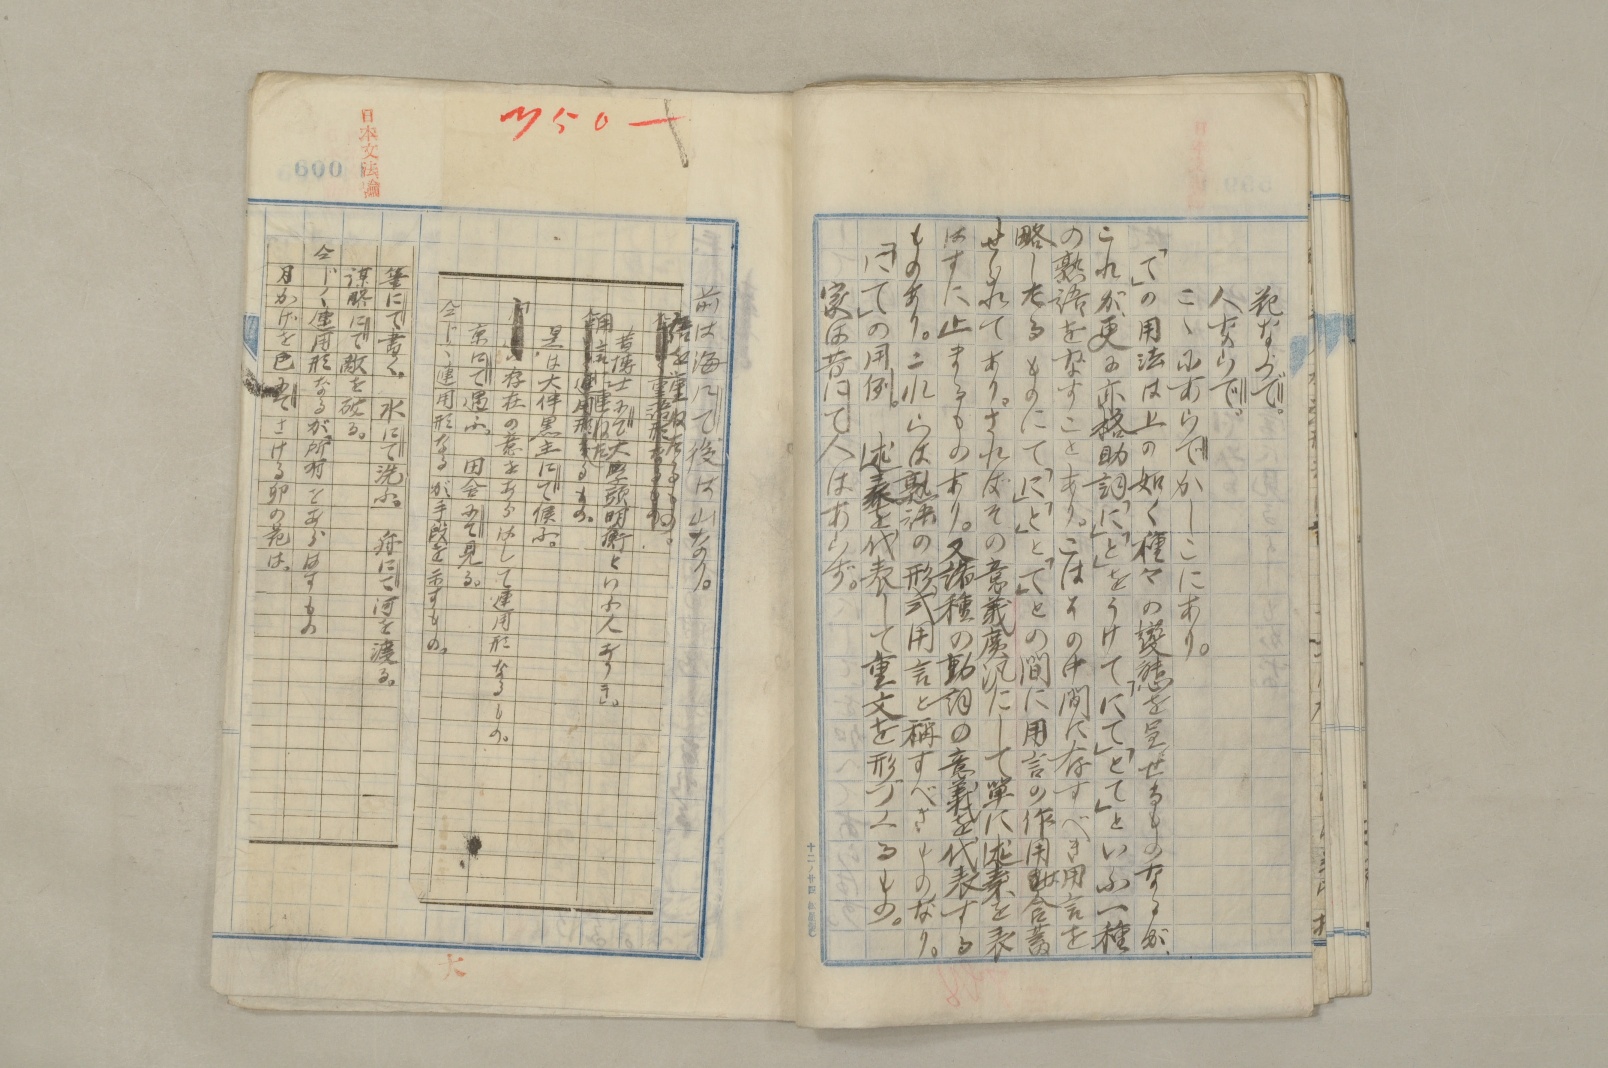 花ならで。
人ならで。
こゝにあらでかしこにあり。
「て」の用法は上の如く種々の変態を呈せるものなるが、
これが更に亦格助詞「に」「と」をうけて「にて」「とて」といふ一種
の熟語をなすことあり。こはその中間に存すべき用言を
略したるものにて「に」「と」と「て」との間に用言の作用は含蓄
せられてあり。さればその意義広汎にして単に述素を表
はすに止まるものあり。又諸種の動詞の意義を代表する
ものあり。これらは熟語の形式用言と称すべきものなり。
「にて」の用例。 述素を代表して重文を形づくるもの。
家は昔にて人はあらず。
日本文法論
600
750
前は海にて後は山なり。
昔博士にて大学頭明衡といふ人ありき。
是は大伴黒主にて候ふ。
存在の意をあらはして連用形なるもの。
京にて遇ふ。 田舎にて見る。
仝じく連用形なるが手段を示すもの。
筆にて書く。 水にて洗ふ。 舟にて河を渡る。
謀略にて敵を破る。
仝じく連用形なるが所有をあらはすもの
月かげを色にてさける卯の花は。